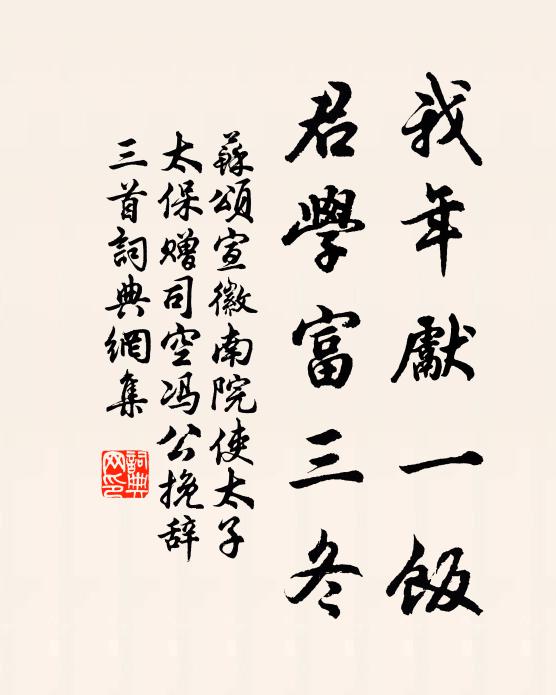 我年獻一飯
君學富三冬
蘇頌宣徽南院使太子
太保赠司空冯公挽辞
三首詞典網集
詞典
网印